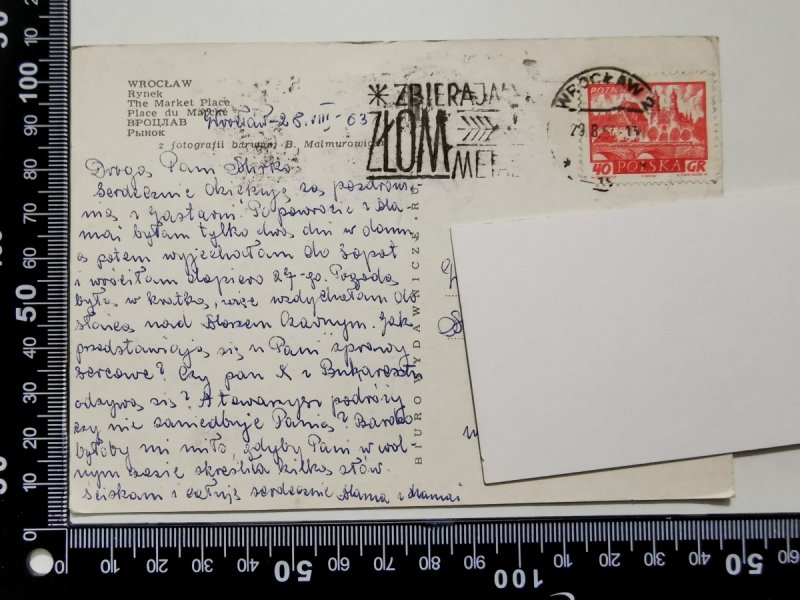 WROCŁAW
Rynek
The Market Place
Place du Marché
ВРОЦЛАВ
Рынок
z fotografii barwnej B. Malmurowicz
Wrocław 28.VIII 63
ZBIERAJMY
ZŁOM
META
WROCŁAW 2
29.8
POZNAŃ
40 POLSKA GR
Droga Pani Mirko
Serdecznie dziękuję za pozdrowie-
nia z Jastarni. Po powrocie z Ma-
mai byłam tylko dwa dni w domu
a potem wyjechałam do Sopot
i wróciłam dopiero 27-go. Pogoda
była w kratkę, więc wzdychałam do
słońca nad Morzem Czarnym. Jak
przedstawiają się u Pani sprawy
sercowe? Czy pan X z Bukaresztu
odzywa się? A towarzysz podróży
czy nie zaniedbuje Panią? Bardzo
byłoby mi miło, gdyby Pani w wol-
nym czasie skreśliła kilka słów.
Ściskam i całuję serdecznie Mama z Mamai
BIURO WYDAWNICZE RU
0 10 20 30 40 50 60 70 80 90 100
50 60 70 80 90 100